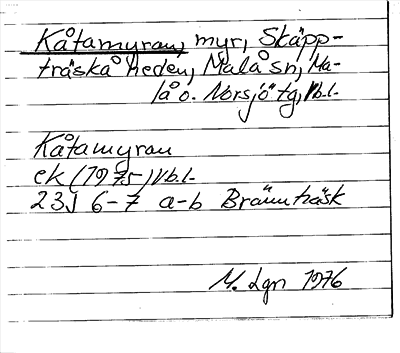 Kåtamyran, myr, Skäpp-
träskåheden, Malå sn, Ma-
lå o. Norsjö tg, Vb.l.
Kåtamyran
ek (1975) Vb.l.
23J 6-7 a-b Brännträsk
M. Lgn 1976